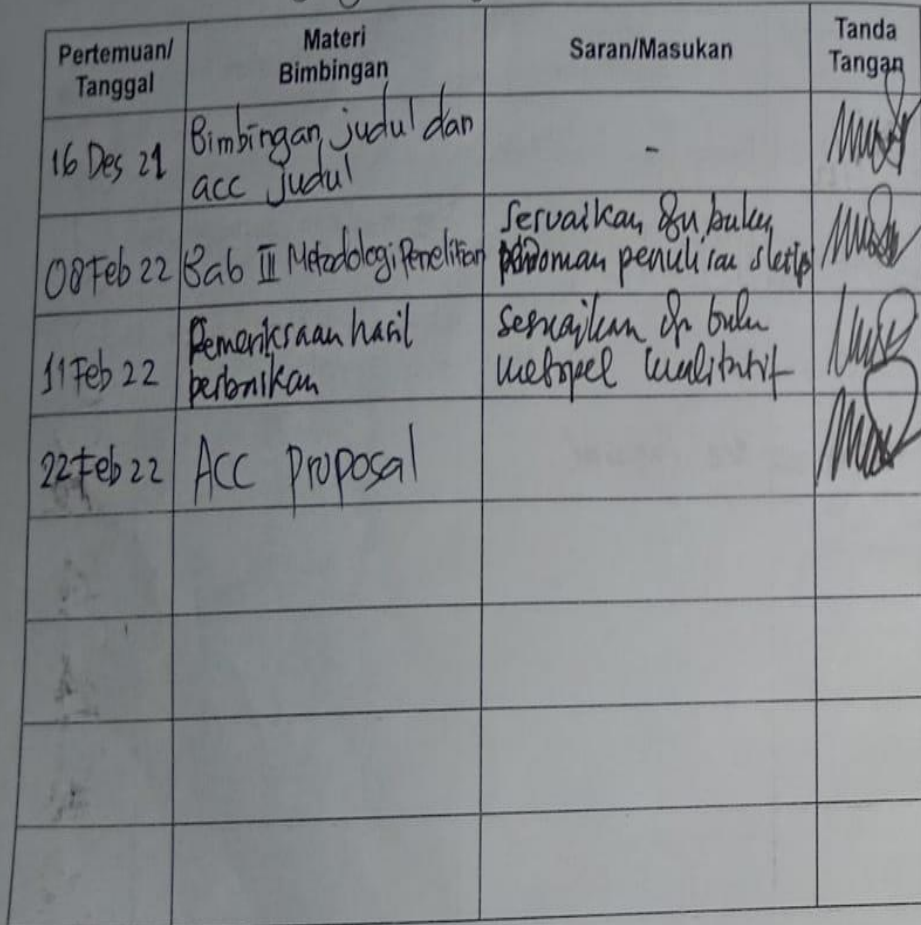 Pertemuan/
Tanggal
Materi
Bimbingan
Saran/Masukan
Tanda
Tangan
16 Des 21
Bimbingan judul dan
acc judul
-
08 Feb 22
Bab III Metodologi Penelitian
Sesuaikan dgn buku
pedoman penulisan skripsi
11 Feb 22
Pemeriksaan hasil
perbaikan
Sesuaikan dgn buku
metopel kualitatif
22 Feb 22
Acc proposal